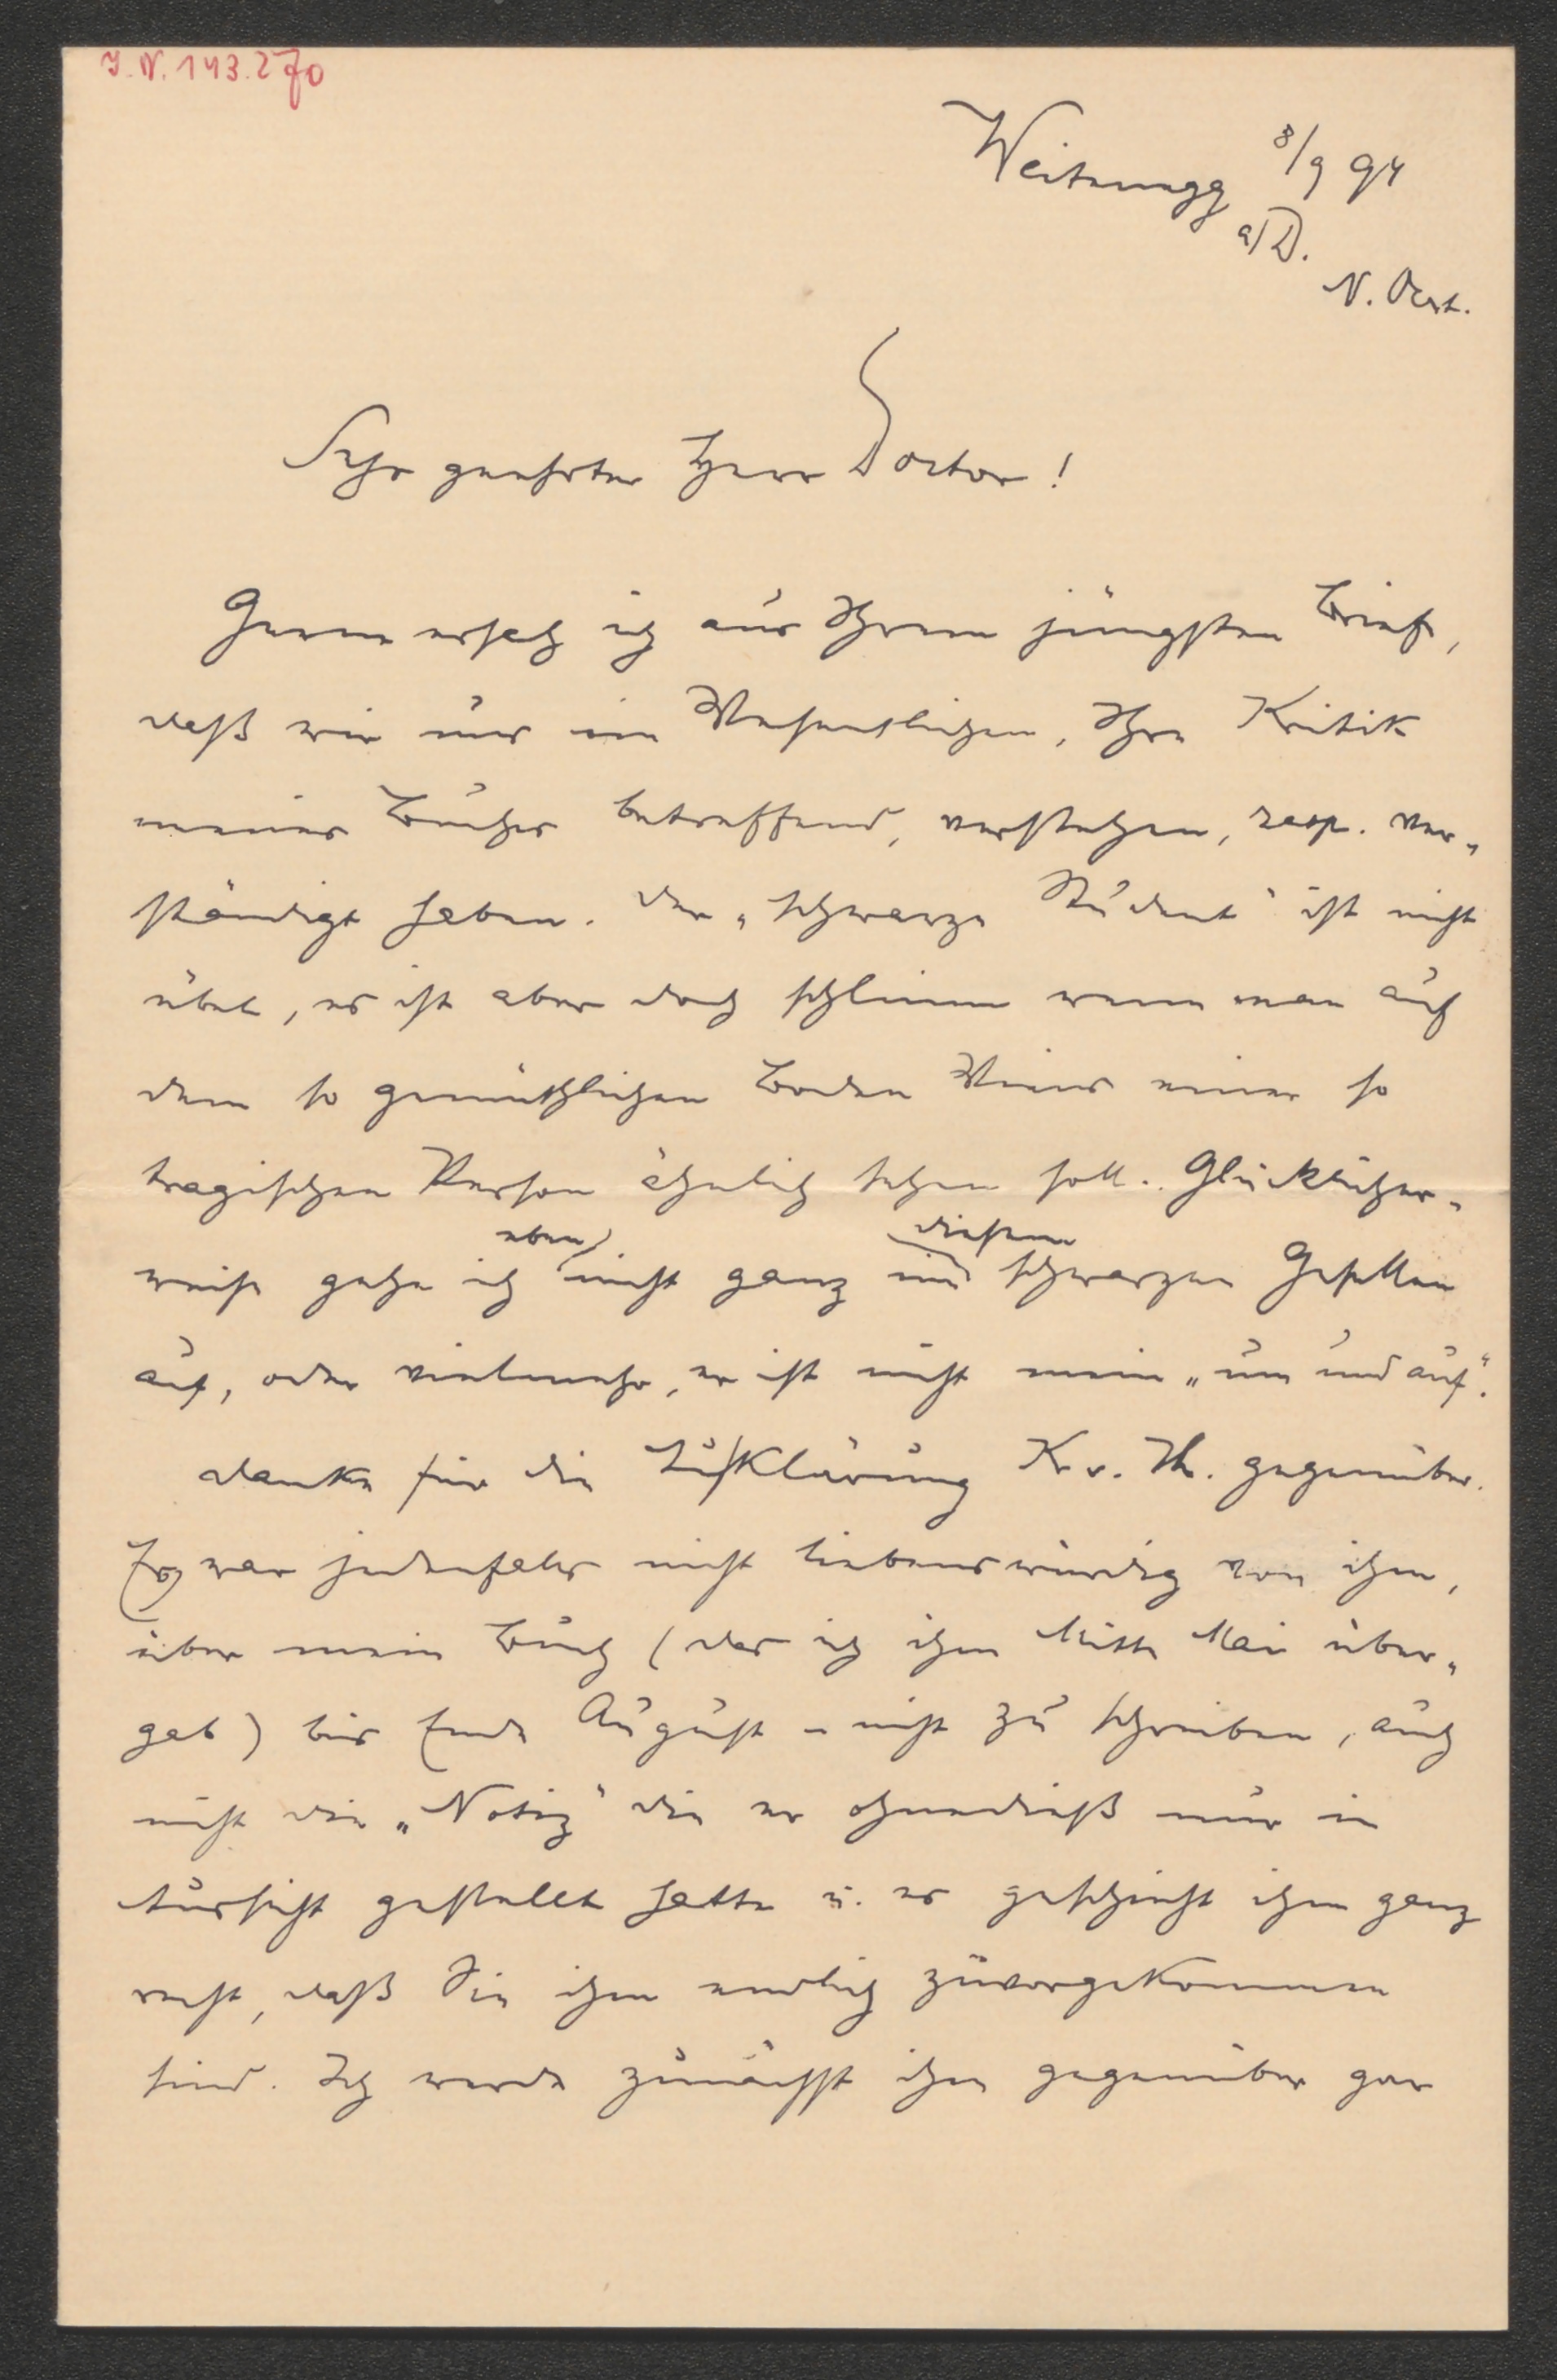 J. N. 143.270
Weitenegg 8/9 94
a/D.
N. Oest.
Sehr geehrter Herr Doctor!
Gerne erseh ich aus Ihrem jüngsten Brief,
daß wir uns im Wesentlichen, Ihre Kritik
meines Buches betreffend, verstehen, resp. ver-
ständigt haben. Der „schwarze Student" ist nicht
übel, es ist aber doch schlimm wenn man auf
dem so gemüthlichen Boden Wiens einer so
tragischen Person ähnlich sehen soll. Glücklicher-
eben diesem
weise gehe ich nicht ganz im schwarzen Gesellen
auf, oder vielmehr, er ist nicht mein „um und auf".
Danke für die Aufklärung K. v. Th. gegenüber.
Es war jedenfalls nicht liebenswürdig von ihm,
über mein Buch (das ich ihm Mitte Mai über-
gab) bis Ende August - nicht zu schreiben, auch
nicht die „Notiz" die er ohnedieß nur in
Aussicht gestellt hatte u. es geschieht ihm ganz
recht, daß Sie ihm endlich zuvorgekommen
sind. Ich werde zunächst ihm gegenüber gar